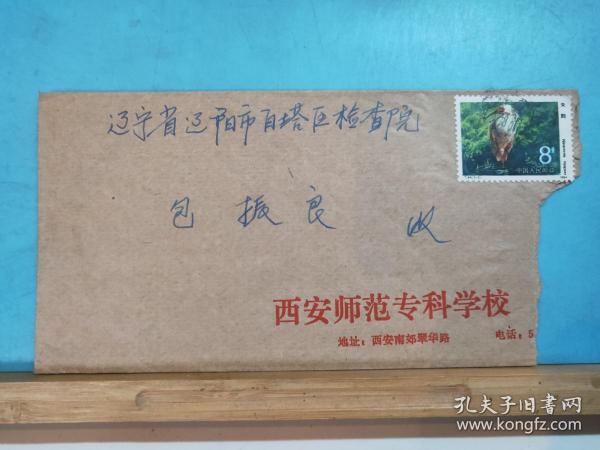 辽宁省辽阳市白塔区检查院
8分
中国人民邮政
包振良 收
西安师范专科学校
地址：西安南郊翠华路 电话：5
孔夫子旧书网
www.kongfz.com